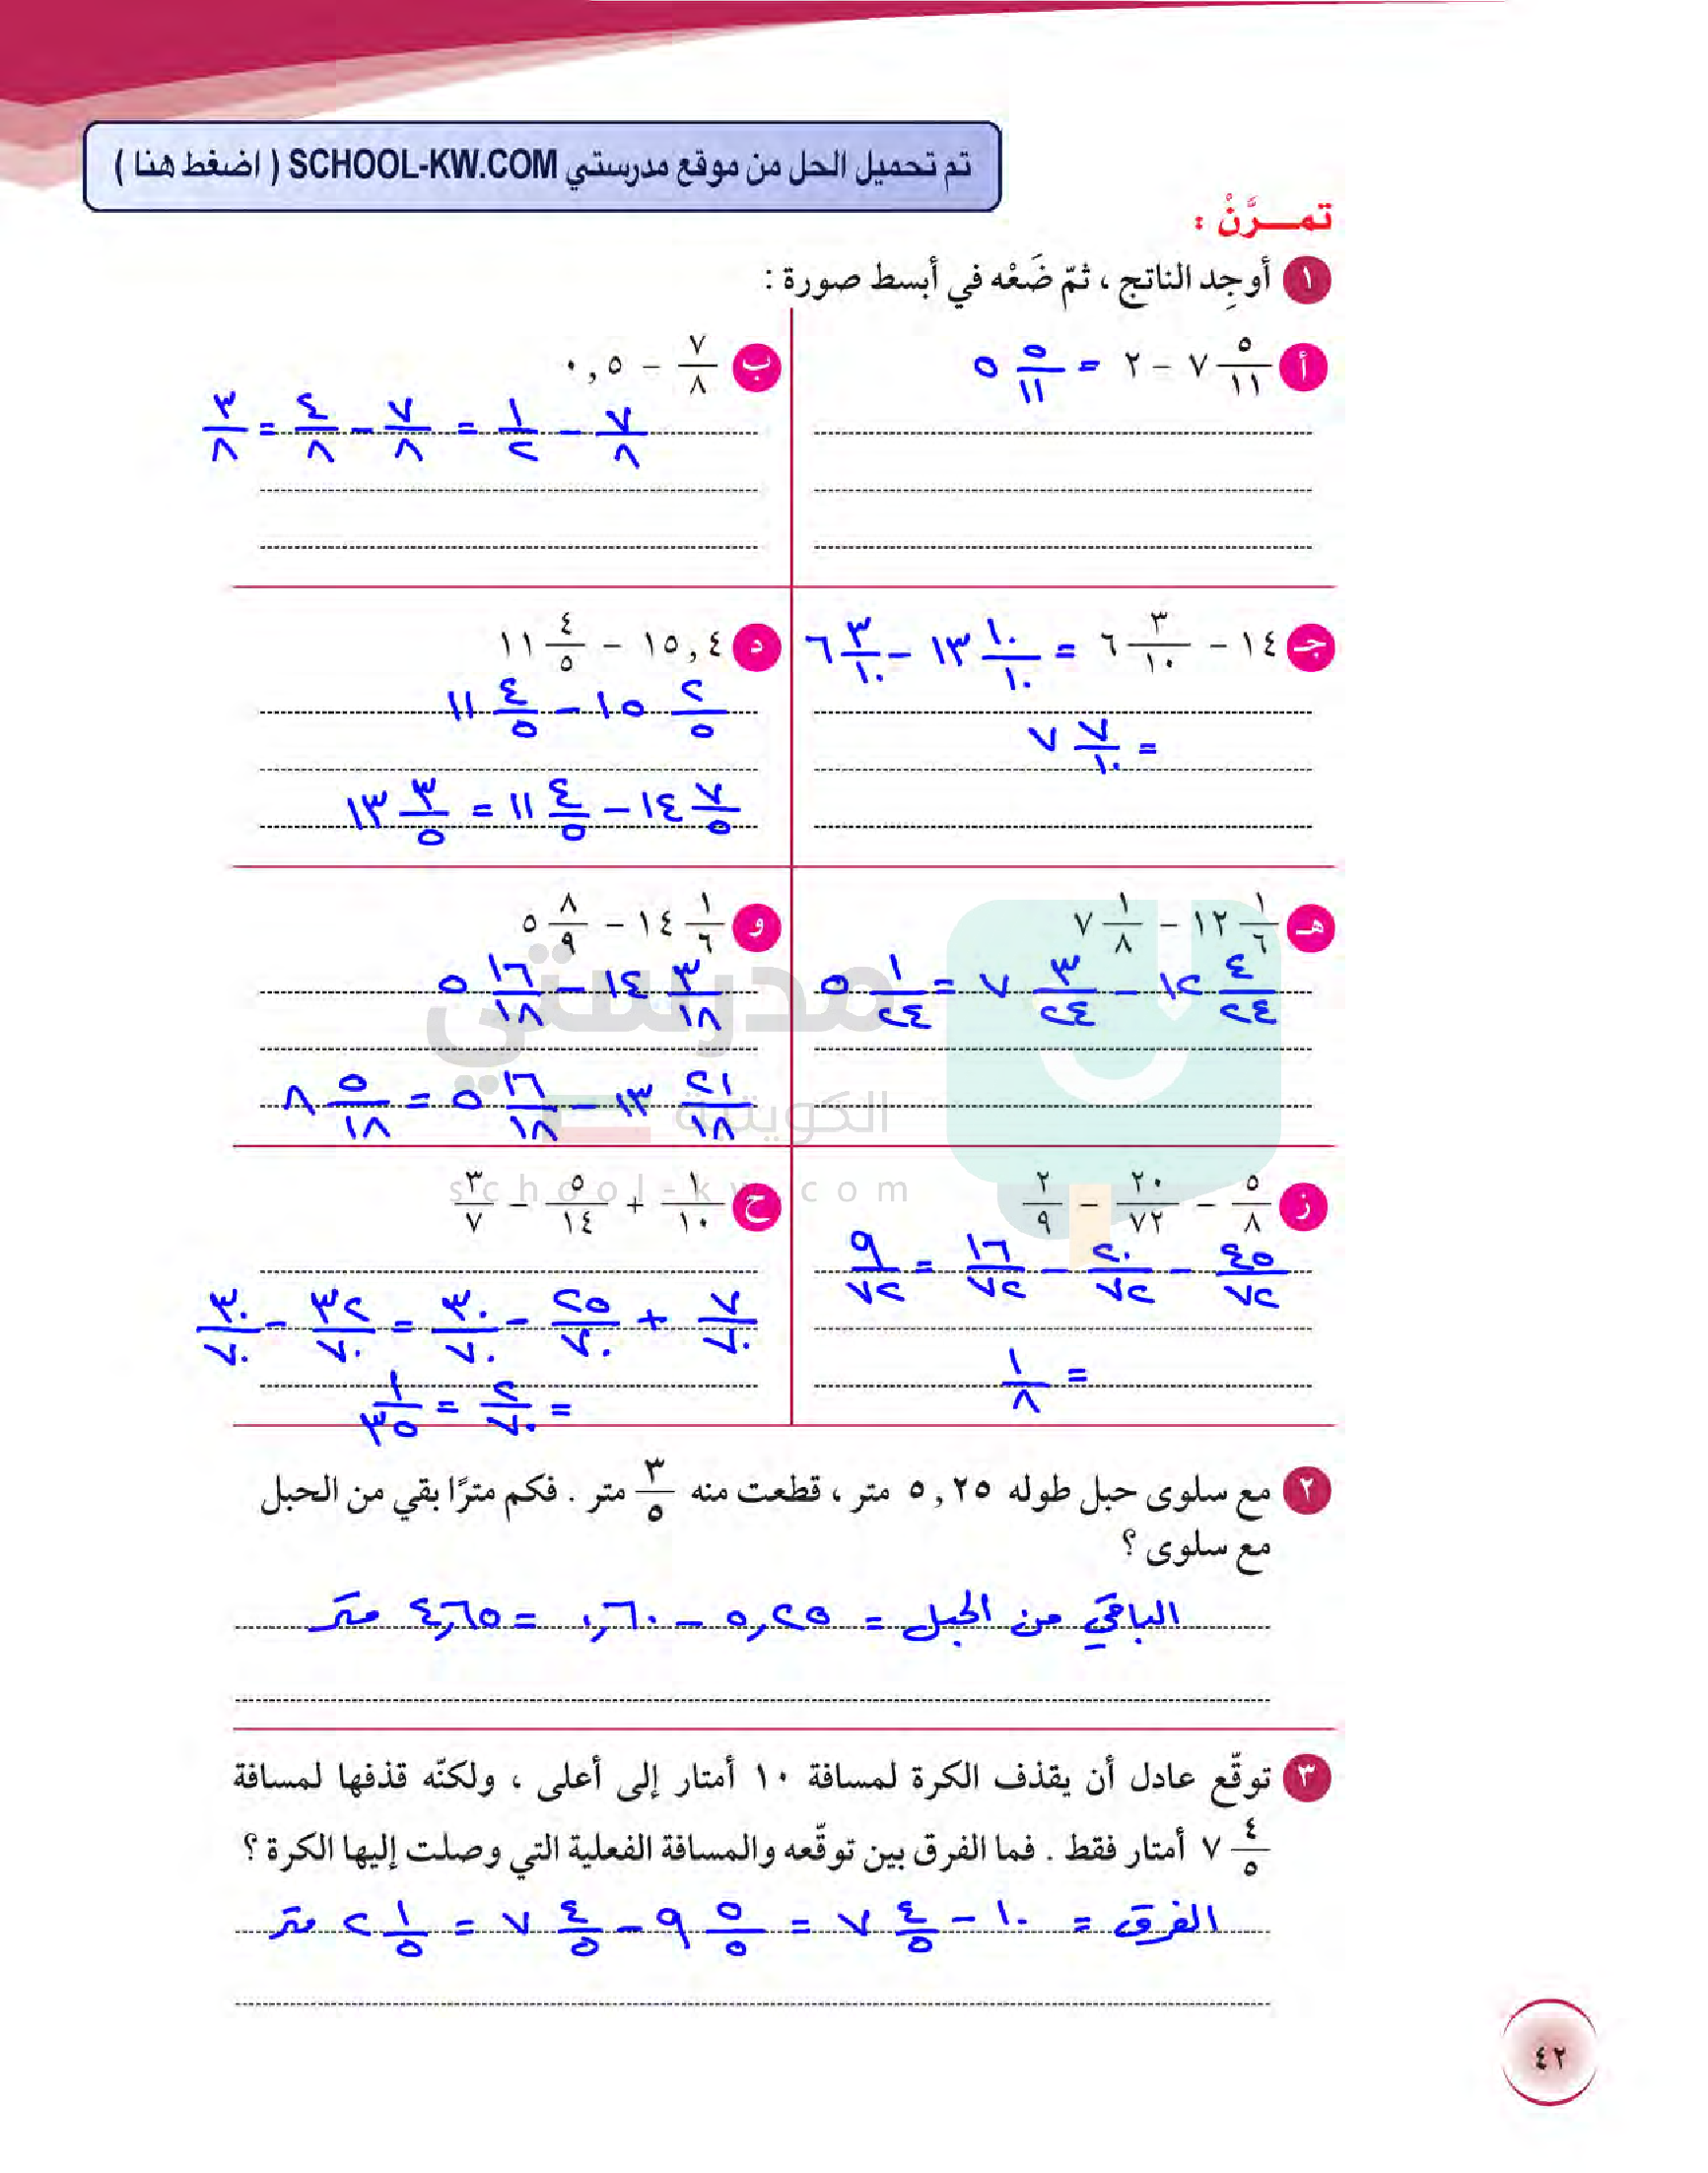 تم تحميل الحل من موقع مدرستي SCHOOL-KW.COM ( اضغط هنا )
تمـــرَّنْ :
١ أوجِد الناتج ، ثمّ ضَعْه في أبسط صورة :
أ ٧ ٥/١١ − ٢ = ٥ ٥/١١
ب ٧/٨ − ٠,٥
٧/٨ − ١/٢ = ٧/٨ − ٤/٨ = ٣/٨
جـ ١٤ − ٦ ٣/١٠ = ١٣ ١٠/١٠ − ٦ ٣/١٠
= ٧ ٧/١٠
د ١٥,٤ − ١١ ٤/٥
١٥ ٢/٥ − ١١ ٤/٥
١٤ ٧/٥ − ١١ ٤/٥ = ١٣ ٣/٥
هـ ١٢ ١/٦ − ٧ ١/٨
١٢ ٤/٢٤ − ٧ ٣/٢٤ = ٥ ١/٢٤
و ١٤ ١/٦ − ٥ ٨/٩
١٤ ٣/١٨ − ٥ ١٦/١٨
١٣ ٢١/١٨ − ٥ ١٦/١٨ = ٨ ٥/١٨
ز ٥/٨ − ٢٠/٧٢ − ٢/٩
٤٥/٧٢ − ٢٠/٧٢ − ١٦/٧٢ = ٩/٧٢
= ١/٨
ح ١/١٠ + ٥/١٤ − ٣/٧
٧/٧٠ + ٢٥/٧٠ − ٣٠/٧٠ = ٣٢/٧٠ − ٣٠/٧٠
= ٢/٧٠ = ١/٣٥
٢ مع سلوى حبل طوله ٥,٢٥ متر ، قطعت منه ٣/٥ متر . فكم مترًا بقي من الحبل
مع سلوى ؟
الباقي من الحبل = ٥,٢٥ − ٠,٦٠ = ٤,٦٥ متر
٣ توقّع عادل أن يقذف الكرة لمسافة ١٠ أمتار إلى أعلى ، ولكنّه قذفها لمسافة
٧ ٤/٥ أمتار فقط . فما الفرق بين توقّعه والمسافة الفعلية التي وصلت إليها الكرة ؟
الفرق = ١٠ − ٧ ٤/٥ = ٩ ٥/٥ − ٧ ٤/٥ = ٢ ١/٥ متر
مدرستي
الكويتية
school-kw.com
٤٢